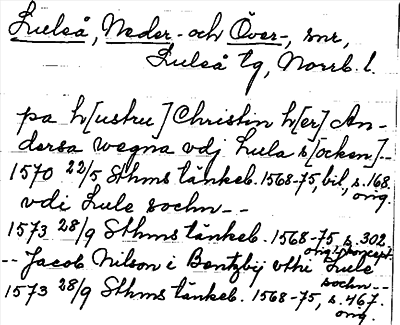 Luleå, Neder- och Över-, snr,
Luleå tg, Norrb. l.
pa h[ustru] Christin h[er] An-
dersa wegna vdj Lula s[ocken]--
1570 22/5 Sthms tänkeb. 1568-75, bil, s. 168.
orig.
vdi Lule sochn--
1573 28/9 Sthms tänkeb. 1568-75, s. 302.
orig. koncept.
-- Jacob Nilson i Bentzbÿ vthi Lule
sochn--
1573 28/9 Sthms tänkeb. 1568-75, s. 467.
orig.